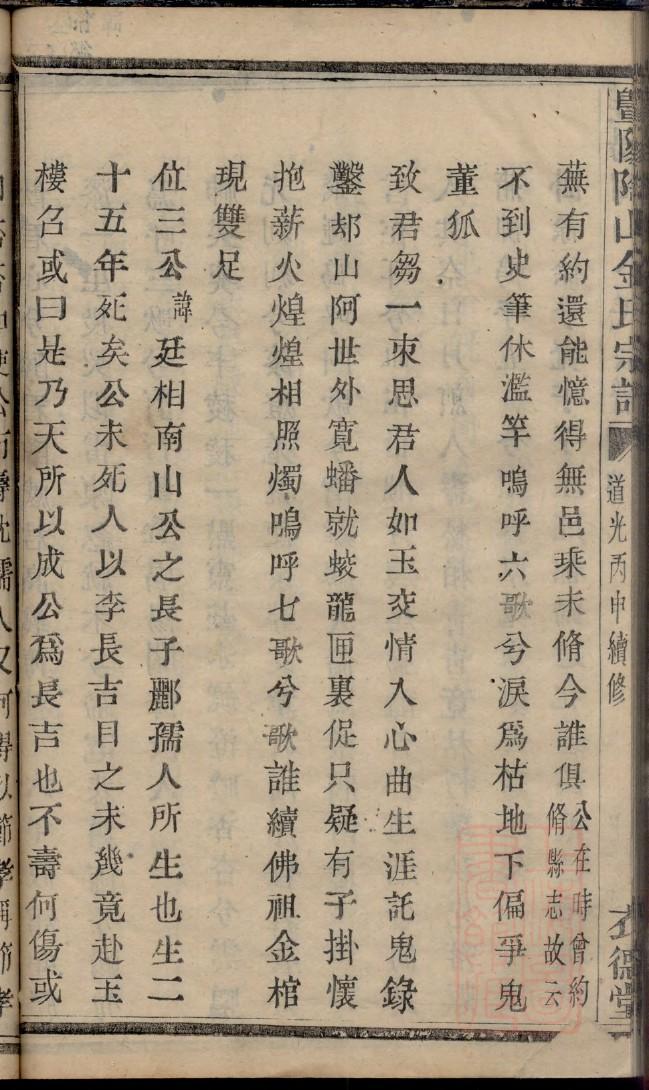 暨陽陶山金氏宗譜
道光丙申續修
衣德堂
蕪有約還能憶得無邑乗未脩今誰俱公在時曾約脩縣志故云
不到史筆休濫竽嗚呼六歌兮淚爲枯地下偏爭鬼
董狐
致君芻一束思君人如玉交情入心曲生涯託鬼錄
鑿却山阿世外寛蟠就蛟龍匣裏促只疑有子掛懷
抱薪火煌煌相照燭嗚呼七歌兮歌誰續佛祖金棺
現雙足
位三公諱廷相南山公之長子酈孺人所生也生二
十五年死矣公未死人以李長吉目之未幾竟赴玉
樓召或曰是乃天所以成公爲長吉也不壽何傷或